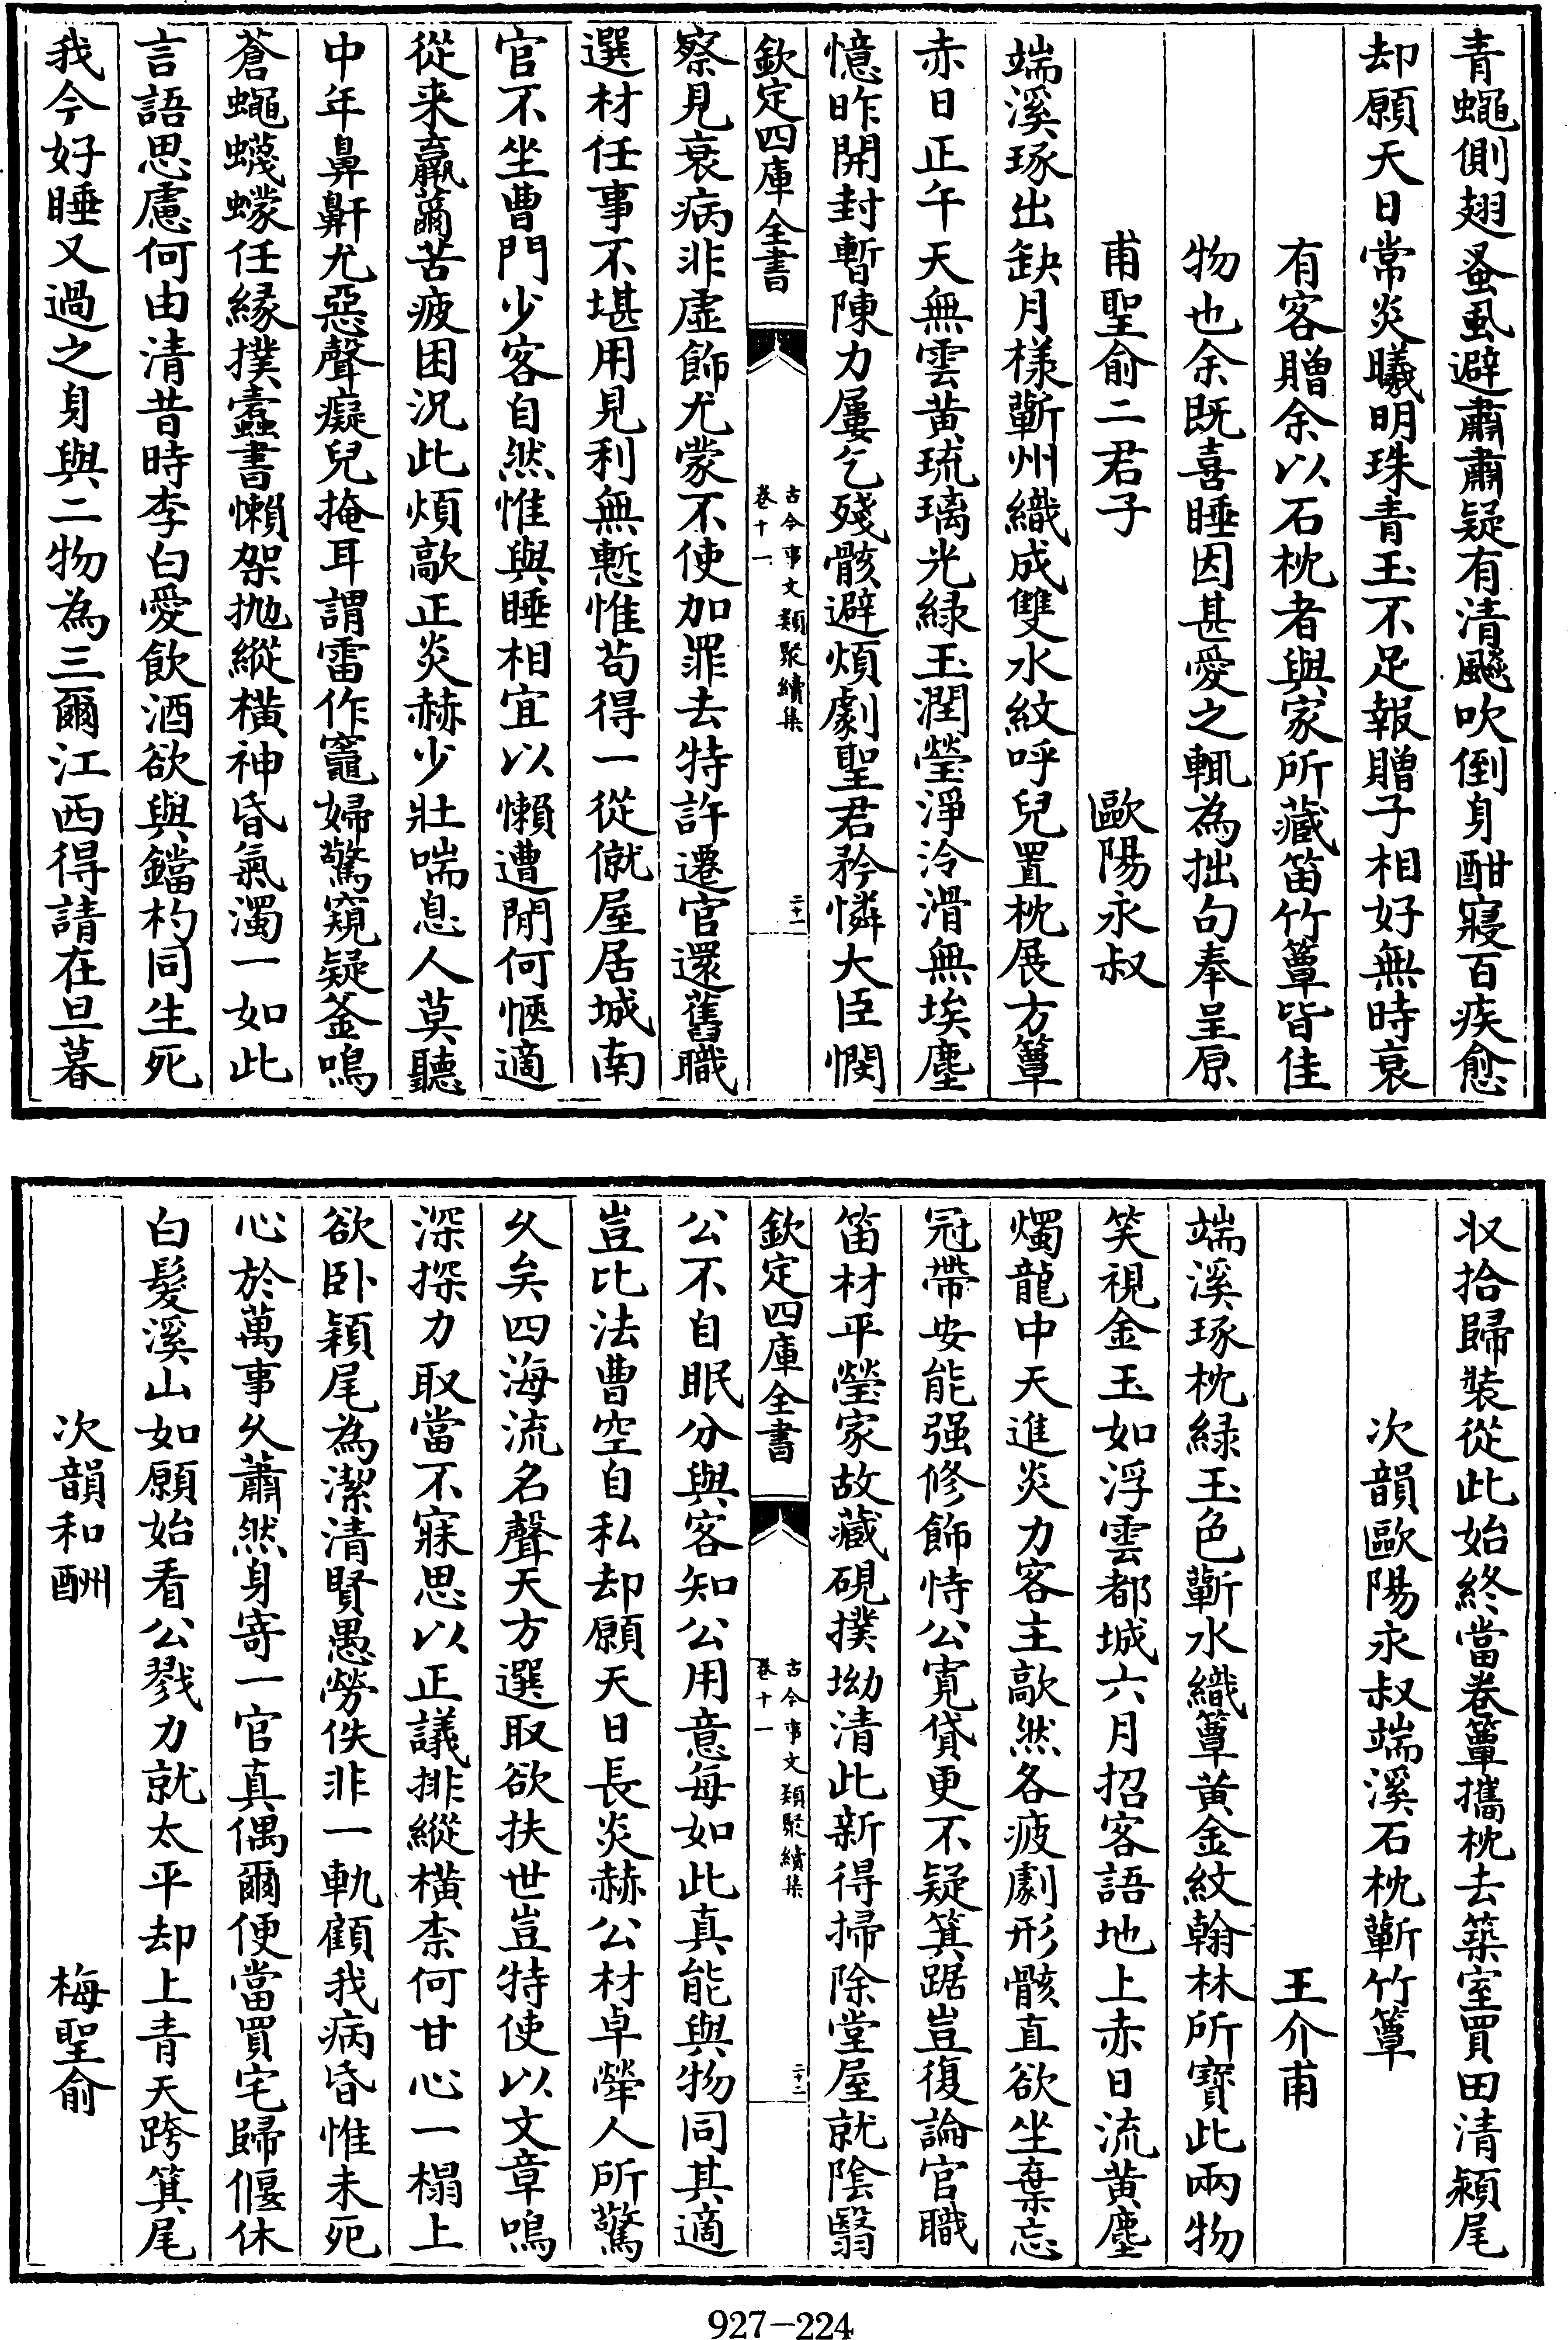 青蠅側翅蚤虱避肅肅疑有清飈吹倒身酣寢百疾愈
却願天日常炎曦明珠青玉不足報贈子相好無時衰
有客贈余以石枕者與家所藏笛竹簟皆佳
物也余既喜睡因甚愛之輒為拙句奉呈原
甫聖俞二君子 歐陽永叔
端溪琢出缺月樣蘄州織成雙水紋呼兒置枕展方簟
赤日正午天無雲黄琉璃光緑玉潤瑩淨泠滑無埃塵
憶昨開封暫陳力屢乞殘骸避煩劇聖君矜憐大臣憫
欽定四庫全書 古今事文類聚續集 卷十一 二十一
察見衰病非虛飾尤蒙不使加罪去特許遷官還舊職
選材任事不堪用見利無慙惟茍得一從僦屋居城南
官不坐曹門少客自然惟與睡相宜以懶遭閒何愜適
從来羸薾苦疲困況此煩歊正炎赫少壯喘息人莫聽
中年鼻鼾尤惡聲癡兒掩耳謂雷作竈婦驚窺疑釜鳴
蒼蠅蠛蠓任縁撲蠧書懶架抛縱横神昏氣濁一如此
言語思慮何由清昔時李白愛飲酒欲與鐺杓同生死
我今好睡又過之身與二物為三爾江西得請在旦暮
収拾歸裝從此始終當卷簟攜枕去築室買田清潁尾
次韻歐陽永叔端溪石枕蘄竹簟
王介甫
端溪琢枕緑玉色蘄水織簟黄金紋翰林所寶此兩物
笑視金玉如浮雲都城六月招客語地上赤日流黄塵
燭龍中天進炎力客主歊然各疲劇形骸直欲坐棄忘
冠帶安能强修飾恃公寛貸更不疑箕踞豈復論官職
笛材平瑩家故藏硯撲坳清此新得掃除堂屋就陰翳
欽定四庫全書 古今事文類聚續集 卷十一 二十二
公不自眠分與客知公用意每如此真能與物同其適
豈比法曹空自私却願天日長炎赫公材卓犖人所驚
乆矣四海流名聲天方選取欲扶世豈特使以文章鳴
深探力取當不寐思以正議排縱横柰何甘心一榻上
欲卧潁尾為潔清賢愚勞佚非一軌顧我病昏惟未死
心於萬事乆蕭然身寄一官真偶爾便當買宅歸偃休
白髮溪山如願始看公戮力就太平却上青天跨箕尾
次韻和酬 梅聖俞
927-224